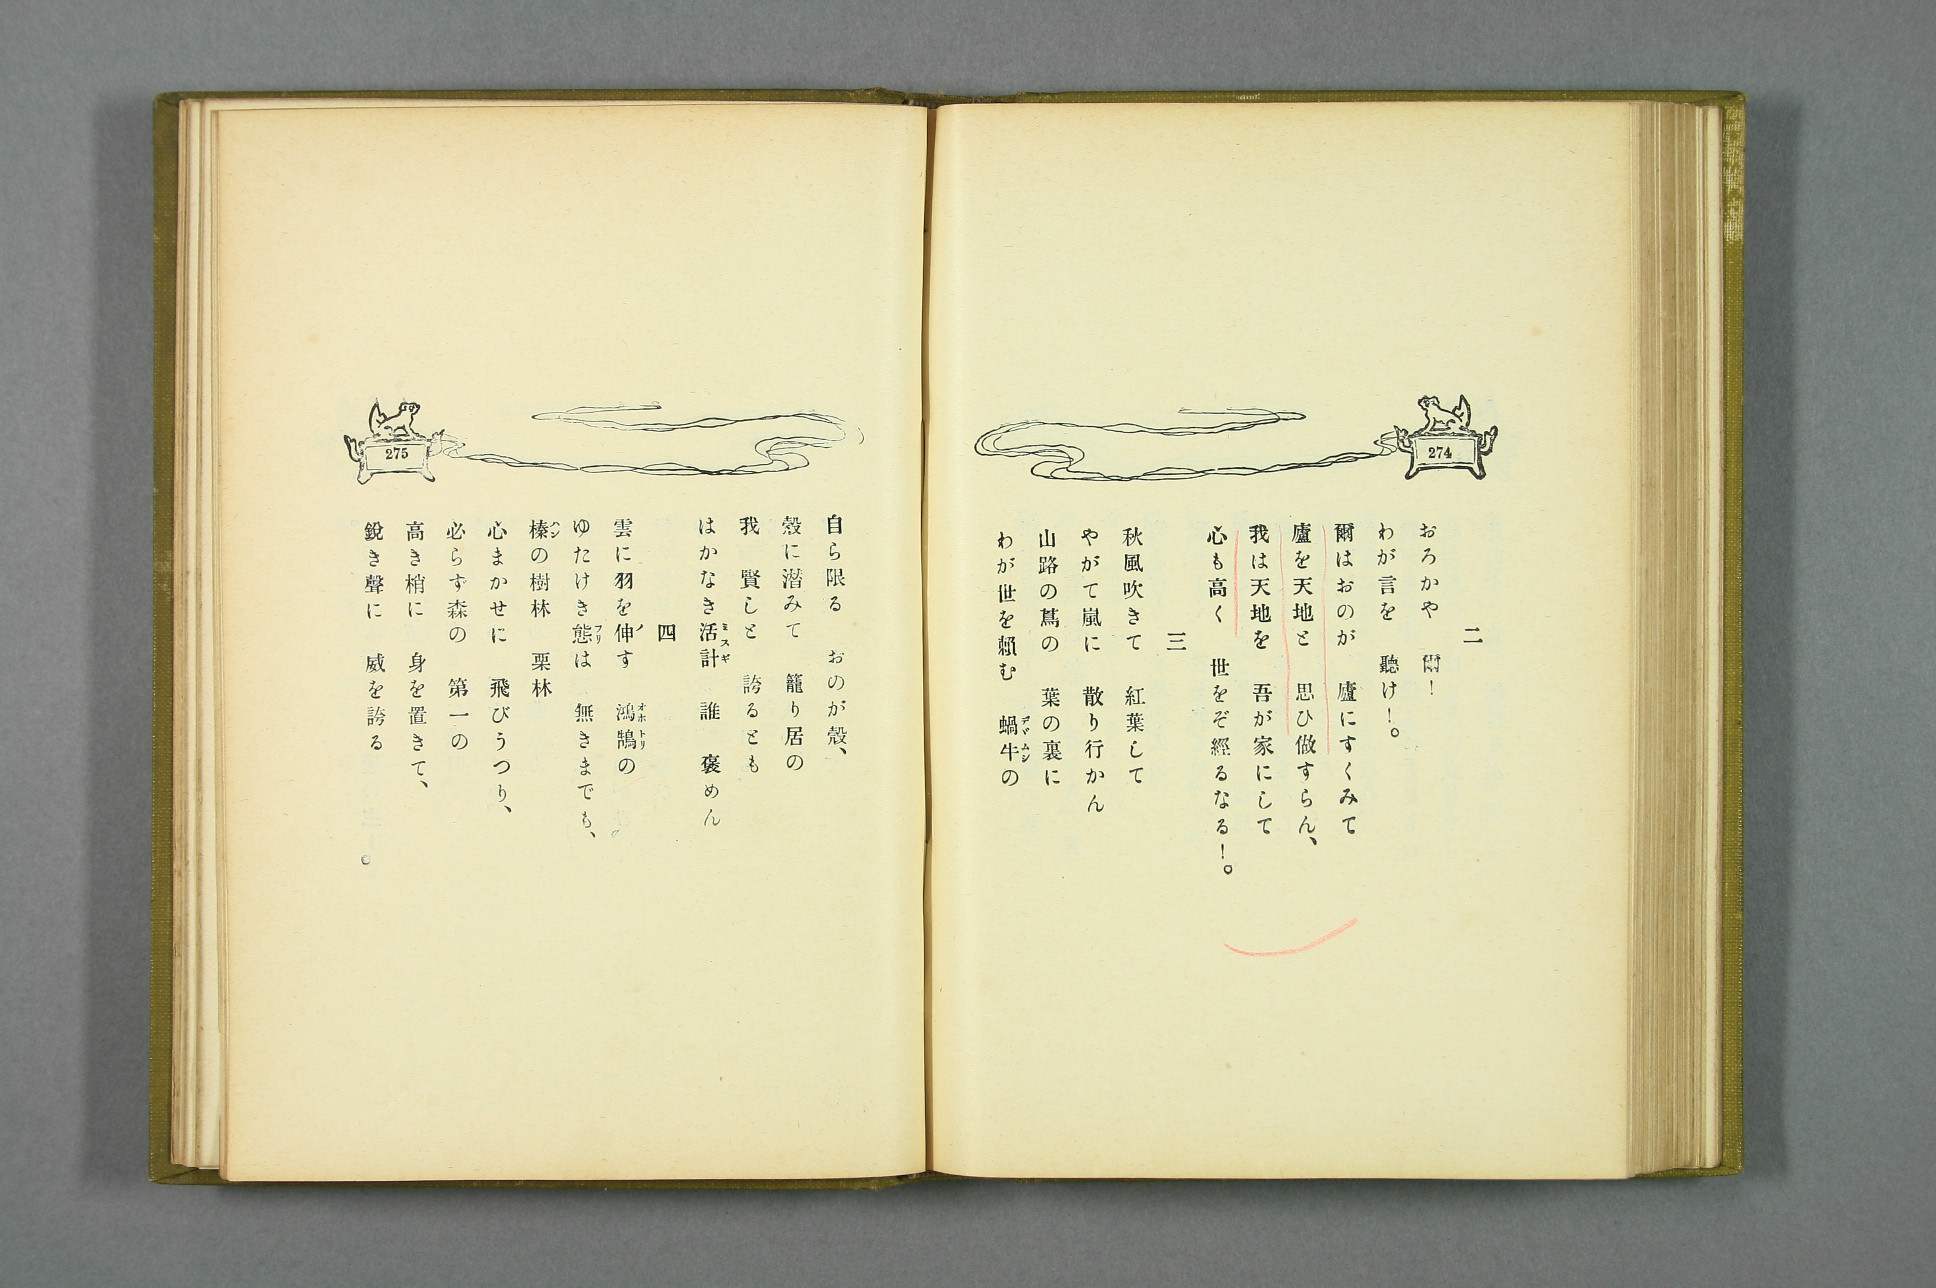 274
二
おろかや　爾！
わが言を　聽け！。
爾はおのが　廬にすくみて
廬を天地と　思ひ做すらん、
我は天地を　吾が家にして
心も高く　世をぞ經るなる！。
三
秋風吹きて　紅葉して
やがて嵐に　散り行かん
山路の蔦の　葉の裏に
わが世を賴む　蝸牛の
デヾムシ
275
自ら限る　おのが殼、
殼に潛みて　籠り居の
我　賢しと　誇るとも
はかなき活計　誰　褒めん
ミスギ
四
雲に羽を伸す　鴻鵠の
ノ　オホトリ
ゆたけき態は　無きまでも、
フリ
榛の樹林　栗林
ハン
心まかせに　飛びうつり、
必らず森の　第一の
高き梢に　身を置きて、
銳き聲に　威を誇る　。